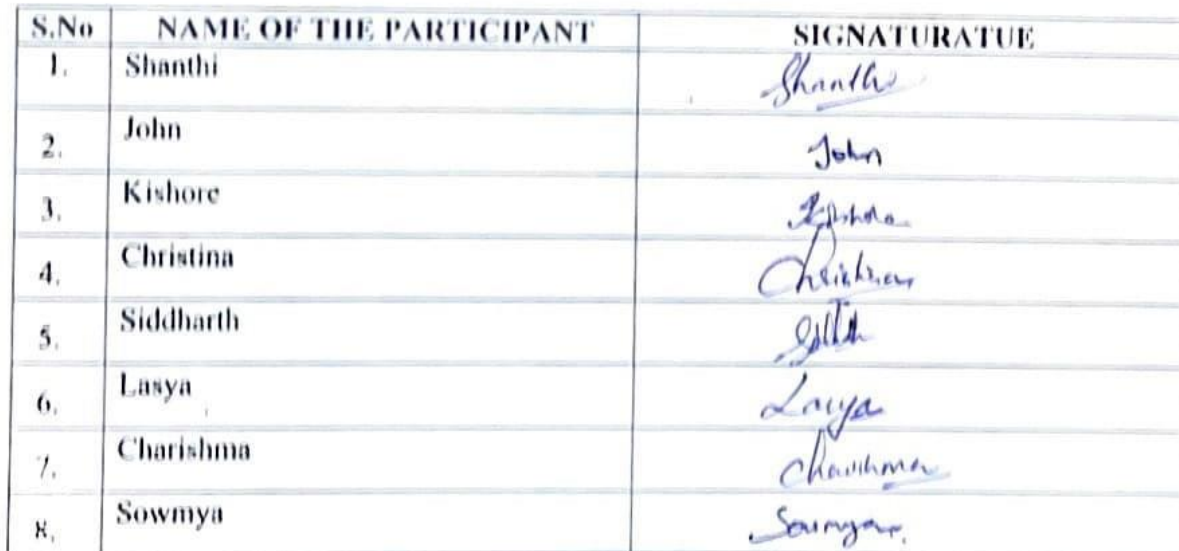 S.No NAME OF THE PARTICIPANT SIGNATURATUE
1. Shanthi Shanthi
2. John John
3. Kishore Kishore
4. Christina Christina
5. Siddharth
6. Lasya Lasya
7. Charishma Charishma
8. Sowmya Sowmya